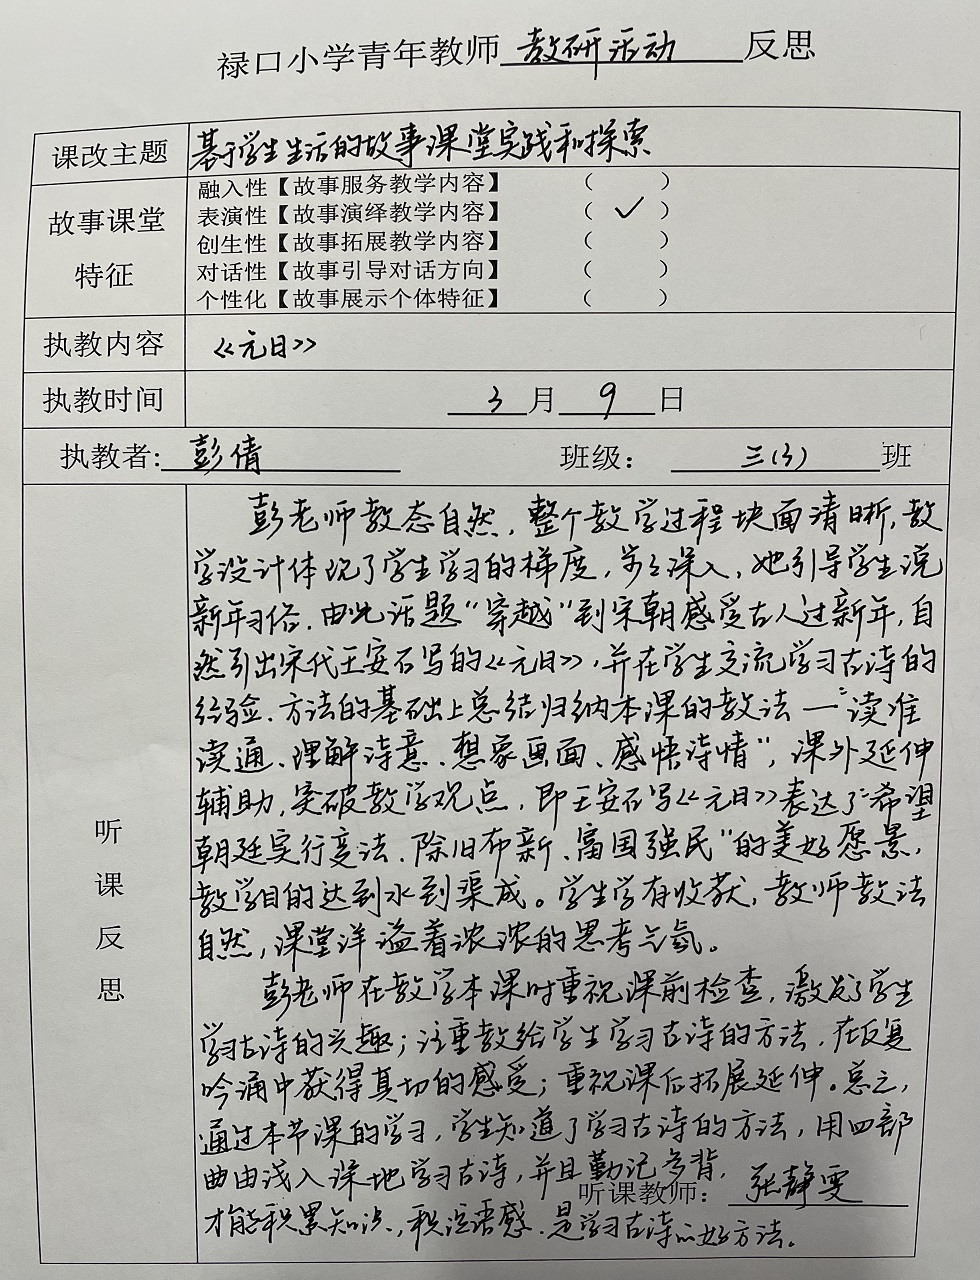 禄口小学青年教师 教研活动 反思
课改主题 基于学生生活的故事课堂实践和探索
融入性【故事服务教学内容】 （ ）
故事课堂 表演性【故事演绎教学内容】 （ ✓ ）
创生性【故事拓展教学内容】 （ ）
特征 对话性【故事引导对话方向】 （ ）
个性化【故事展示个体特征】 （ ）
执教内容 《元日》
执教时间 3月9日
执教者: 彭倩 班级： 三(3) 班
听课反思
彭老师教态自然，整个教学过程块面清晰，教
学设计体现了学生学习的梯度，步步深入，她引导学生说
新年习俗．由此话题“穿越”到宋朝感受古人过新年，自
然引出宋代王安石写的《元日》，并在学生交流学习古诗的
经验、方法的基础上总结归纳本课的教法一“读准
读通、理解诗意、想象画面、感悟诗情”，课外延伸
辅助，突破教学观点，即王安石写《元日》表达了“希望
朝廷实行变法、除旧布新、富国强民”的美好愿景，
教学目的达到水到渠成。学生学有收获，教师教法
自然，课堂洋溢着浓浓的思考气氛。
彭老师在教学本课时重视课前检查，激发了学生
学习古诗的兴趣；注重教给学生学习古诗的方法，在反复
吟诵中获得真切的感受；重视课后拓展延伸。总之，
通过本节课的学习，学生知道了学习古诗的方法，用四部
曲由浅入深地学习古诗，并且勤记多背，
听课教师： 张静雯
才能积累知识，积淀语感．是学习古诗的好方法。